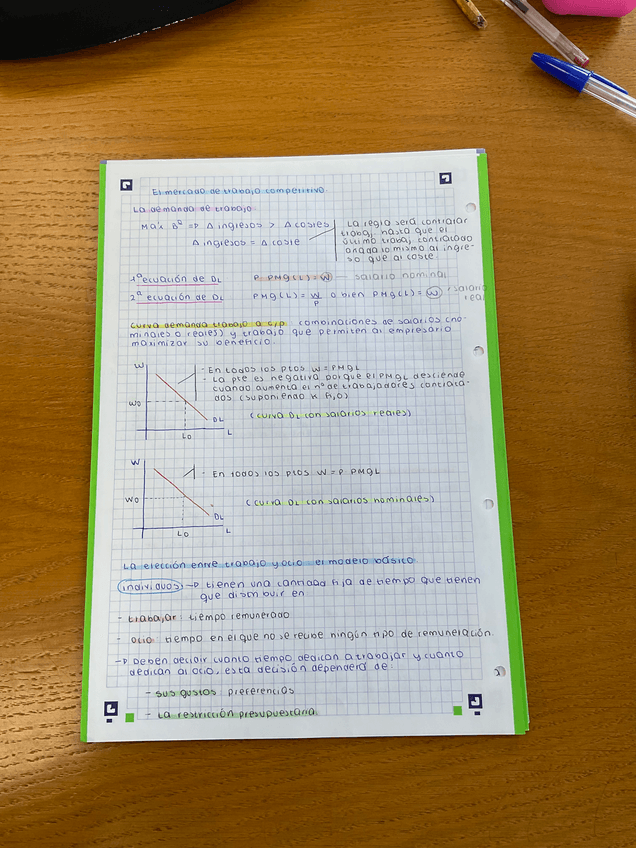 El mercado de trabajo competitivo.
La demanda de trabajo
Máx. Bº =P Δ ingresos > Δ costes
Δ ingresos = Δ coste
La regla será contratar
trabaj. hasta que el
último trabaj. contratado
añada lo mismo al ingre-
so que al coste
1ª ecuación de DL P PMg(L) = W — salario nominal
2ª ecuación de DL PMg(L) = W/P o bien PMg(L) = W salario
real
Curva demanda trabajo a c/p. combinaciones de salarios (no-
minales o reales) y trabajo que permiten al empresario
maximizar su beneficio.
W
- En todos los ptos W = PMgL
- La pte es negativa porque el PMgL desciende
cuando aumenta el nº de trabajadores contrata-
dos (suponiendo K fijo)
W0
(curva DL con salarios reales)
DL
L0 L
W
- En todos los ptos W = P PMgL
W0
(curva DL con salarios nominales)
DL
L0 L
La elección entre trabajo y ocio el modelo básico
individuos -P tienen una cantidad fija de tiempo que tienen
que distribuir en
- trabajar tiempo remunerado
- ocio tiempo en el que no se recibe ningún tipo de remuneración.
-P Deben decidir cuanto tiempo dedican a trabajar y cuanto
dedican al ocio, esta decisión dependerá de:
- sus gustos preferencias
- La restricción presupuestaria.